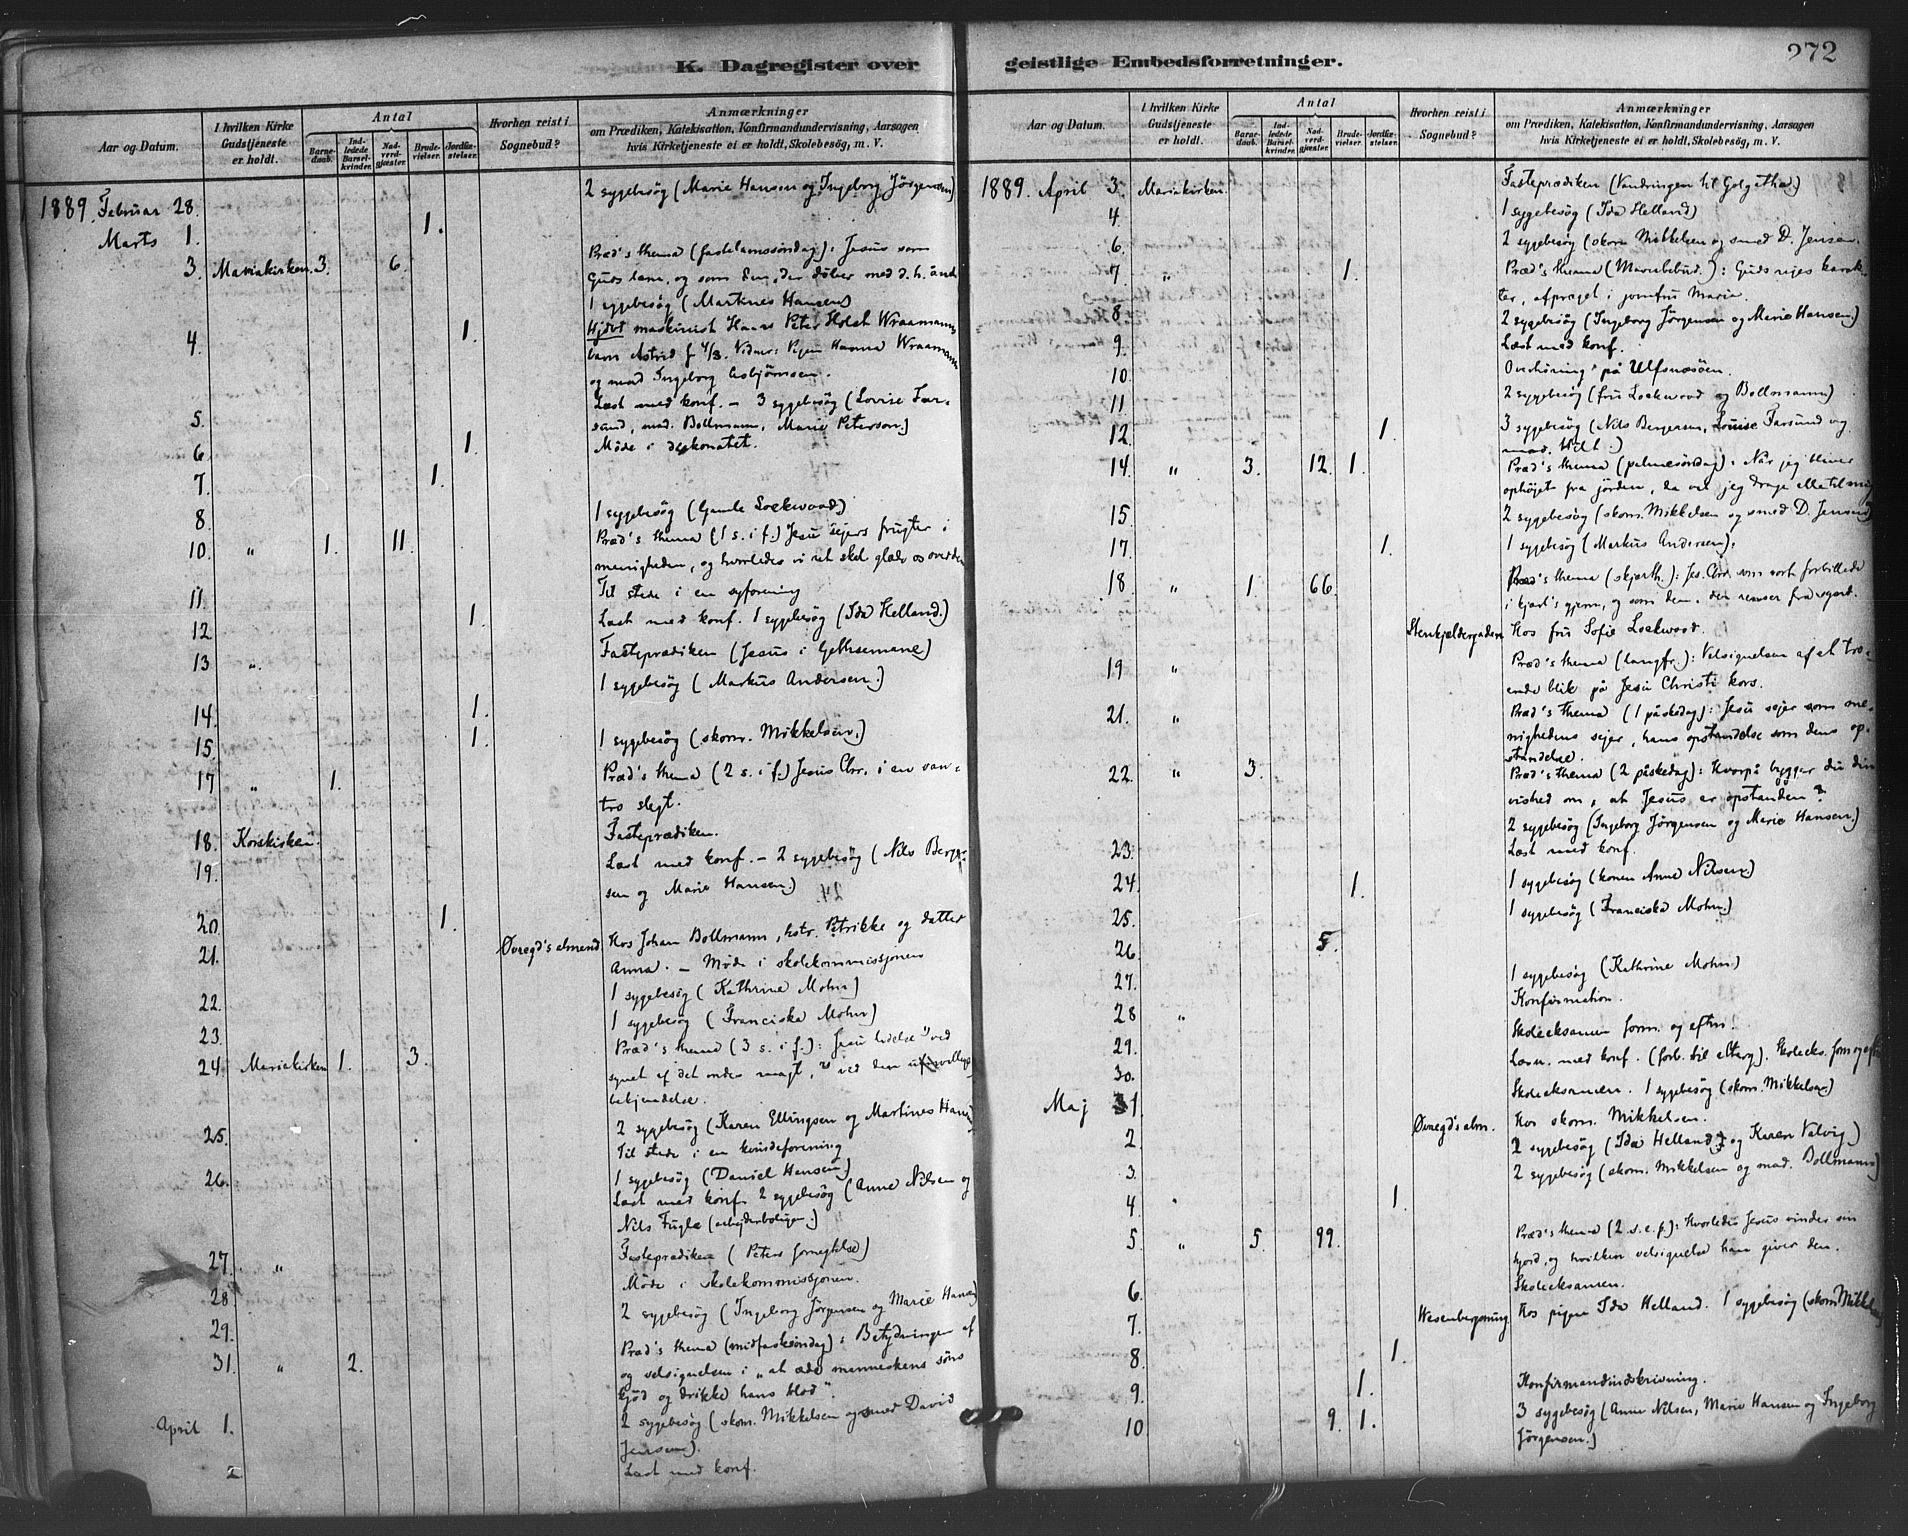 272
K. Dagregister over
geistlige Embedsforretninger.
Aar og Datum.
I hvilken Kirke Gudstjeneste er holdt.
Antal
Barnedaab.
Indledede Barselkvinder.
Nadverdgjæster.
Brudevielser.
Jordfæstelser.
Hvorhen reist i Sognebud?
Anmærkninger
om Prædiken, Katekisation, Konfirmandundervisning, Aarsagen
hvis Kirketjeneste ei er holdt, Skolebesøg, m. V.
1889. Februar 28. 2 sygebesøg (Marie Hansen og Ingeborg Jörgensen)
Marts 1. 1.
3. Mariakirken. 3. 6. Præd's thema (fastelamssøndag): Jesus som
Guds lam, og som den, der döber med d. h. ånd
1 sygebesøg (Martines Hansen)
4. 1. Hjdbt maskinist Hans Peter Holst Wraamanns
barn Astrid f. 4/3. Vidner: Pigen Hanna Wraamann
og mad Ingeborg Asbjörnsen.
5. Læst med konf. – 3 sygebesøg (Lovise Far-
sund, mad. Bollmann, Marie Peterson.)
6. 1. Möde i dekanatet.
7. 1.
8. 1 sygebesøg (Gamle Lockwood)
10. " 1. 11. Præd's thema (1 s. i f.) Jesu sejers frugter i
menigheden, og hvorledes vi ret skal glæde os over den
11. Til stede i en syforening
12 1. Læst med konf. 1 sygebesøg (Ida Helland.)
13 ". Fasteprædiken (Jesus i Gethsemane)
1 sygebesøg (Markus Andersen.)
14. 1.
15. 1. 1 sygebesøg (skom. Mikkelsen.)
17 " 1. Præd's thema (2 s. i f.) Jesus Chr. i en van-
tro slegt.
18. Korskirken. Fasteprædiken.
19. Læst med konf. – 2 sygebesøg (Nils Berge-
sen og Marie Hansen)
20. 1.
21. Øvregd's almend Hos Johan Bollmann, hstr. Petrikke og datter
Anna. – Møde i skolekommissjonen
22. 1 sygebesøg (Kathrine Mohn)
23. 1 sygebesøg (Franciska Mohn)
24. Mariakirken 1. 3. Præd's thema (3 s. i f.): Jesu lidelse 1) ved
synet af det ondes magt, 2) ved den
bekjendelse.
25. 2 sygebesøg (Karen Ellingsen og Martines Hansen)
Til stede i en kvindeforening
26. 1 sygebesøg (Daniel Hansen)
Læst med konf. 2 sygebesøg (Anne Nilsen og
Nils Fugle (arbejderboligen.)
27. " Fasteprædiken (Peters fornegtelse)
28. Möde i skolekommissjonen.
29. 2 sygebesøg (Ingeborg Jörgensen og Marie Hansen)
31. " 2. Præd's thema (midfastesøndag): Betydningen af
og velsignelsen i „at æde menneskens søns
kjöd og drikke hans blod".
April 1. 2 sygebesøg (skom. Mikkelsen og smed David
Jensen).
2 Læst med konf.
Aar og Datum.
I hvilken Kirke Gudstjeneste er holdt.
Antal
Barnedaab.
Indledede Barselkvinder.
Nadverdgjæster.
Brudevielser.
Jordfæstelser.
Hvorhen reist i Sognebud?
Anmærkninger
om Prædiken, Katekisation, Konfirmandundervisning, Aarsagen
hvis Kirketjeneste ei er holdt, Skolebesøg, m. V.
1889. April 3. Mariakirken. Fasteprædiken (Vandringen til Golgatha.)
4. 1 sygebesøg (Ida Helland)
6. 2 sygebesøg (skom Mikkelsen og smed D. Jensen.
7. " 1. Præd's thema (Mariæbebud.): Guds riges karak-
ter, afpræget i jomfru Maria.
8 2 sygebesøg (Ingeborg Jörgensen og Marie Hansen.)
9. Læst med konf.
10. Overhøring på Ulfsnæsöen.
11 2 sygebesøg (fru Lockwood og Bollmann)
12. 1. 3 sygebesøg (Nils Bergersen, Louise Farsund og
mad. Hilt.)
14. " 3. 12. 1. Præd's thema (palmesöndag): Når jeg bliver
ophöjet fra jörden, da vil jeg drage alle til mig
15. 2 sygebesøg (skom. Mikkelsen og smed D. Jensen)
17. 1. 1 sygebesøg (Markus Andersen).
18 " 1. 66. Præd's thema (skjærth.): Jes. Chr. som vort forbillede
i kjærl's gjern, og som den, der renser fra synd.
Stenkjældergaden Hos fru Sofie Lockwood.
19 " Præd's thema (langfr.): Velsignelsen af et tro-
ende blik på Jesu Christi kors.
21. " Præd's thema (1 påskedag): Jesu sejer som me-
nighedens sejer, hans opstandelse som dens op-
standelse.
22. " 3. Præd's thema (2 påskedag): Hvorpå bygger du din
vished om, at Jesus er opstanden?
2 sygebesøg (Ingeborg Jörgensen og Marie Hansen.)
23. Læst med konf.
24. 1. 1 sygebesøg (konen Anne Nilsen)
25. 1 sygebesøg (Franciska Mohn.)
26 5.
27. 1 sygebesøg (Kathrine Mohn)
28 " Konfirmation.
29. Skoleeksamen form. og efterm.
30. Læsn. med konf. (forb. til alterg). Skoleeks. form og efterm
Maj 1. Skoleeksamen. 1 sygebesøg (skom. Mikkelsen)
2 Øvregd's alm. Hos skom. Mikkelsen.
2 sygebesøg (Ida Helland og Karen Valvig.)
3. 2 sygebesøg (skom. Mikkelsen og mad. Bollmann)
4. " 1.
5. " 5. 99. Præd's thema (2 s. e. p.): Hvorledes Jesus vinder sin
hjord, og hvilken velsignelse han giver den.
6. Skoleeksamen.
7. Wesenbergsmug Hos pigen Ida Helland. 1 sygebesøg (skom. Mikkelsen)
8. 1.
9. 1. Konfirmandindskrivning.
10. 9. 1. 3 sygebesøg (Anne Nilsen, Marie Hansen og Ingeborg
Jörgensen.)